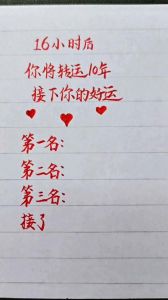 16小时后
你将转运10年
接下你的好运
第一名:
第二名:
第三名:
接了